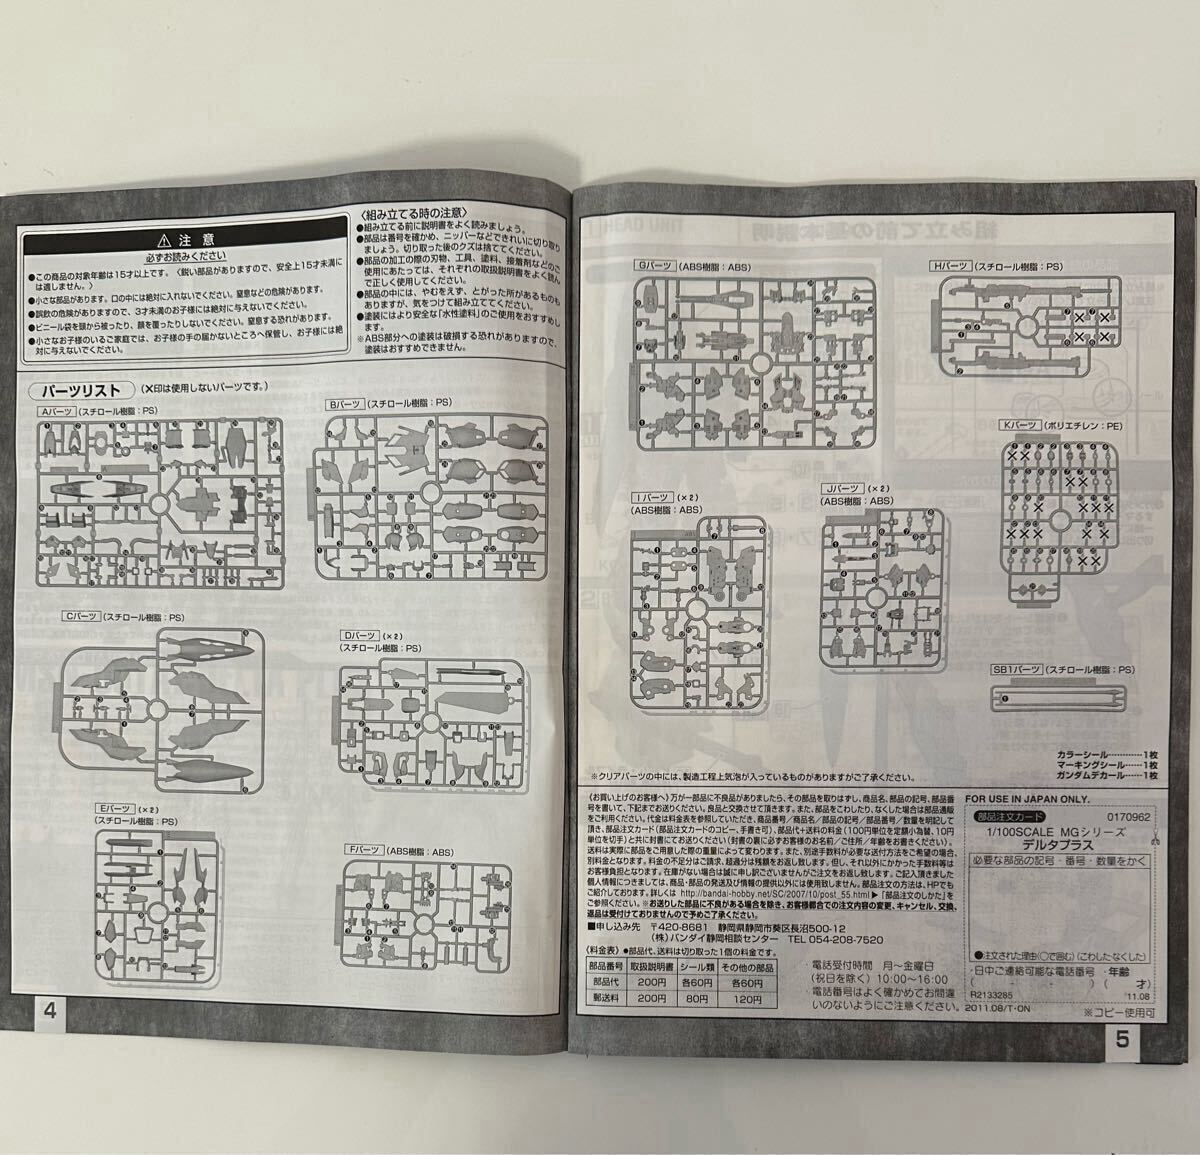 ⚠ 注 意
必ずお読みください
●この商品の対象年齢は15才以上です。〈鋭い部品がありますので、安全上15才未満に
は適しません。〉
●小さな部品があります。口の中には絶対に入れないでください。窒息などの危険があります。
●誤飲の危険がありますので、3才未満のお子様には絶対に与えないでください。
●ビニール袋を頭から被ったり、顔を覆ったりしないでください。窒息する恐れがあります。
●小さなお子様のいるご家庭では、お子様の手の届かないところへ保管し、お子様には絶
対に与えないでください。
〈組み立てる時の注意〉
●組み立てる前に説明書をよく読みましょう。
●部品は番号を確かめ、ニッパーなどできれいに切り取り
ましょう。切り取った後のクズは捨ててください。
●部品の加工の際の刃物、工具、塗料、接着剤などのご
使用にあたっては、それぞれの取扱説明書をよく読ん
で正しく使用してください。
●部品の中には、やむをえず、とがった所があるものも
ありますが、気をつけて組み立ててください。
●塗装にはより安全な「水性塗料」のご使用をおすすめし
ます。
※ABS部分への塗装は破損する恐れがありますので、
塗装はおすすめできません。
パーツリスト (✕印は使用しないパーツです。)
Aパーツ (スチロール樹脂：PS)
Bパーツ (スチロール樹脂：PS)
Cパーツ (スチロール樹脂：PS)
Dパーツ (×2)
(スチロール樹脂：PS)
Eパーツ (×2)
(スチロール樹脂：PS)
Fパーツ (ABS樹脂：ABS)
4
Gパーツ (ABS樹脂：ABS)
Hパーツ (スチロール樹脂：PS)
Iパーツ (×2)
(ABS樹脂：ABS)
Jパーツ (×2)
(ABS樹脂：ABS)
Kパーツ (ポリエチレン：PE)
SB1パーツ (スチロール樹脂：PS)
カラーシール…………1枚
マーキングシール……1枚
ガンダムデカール……1枚
※クリアパーツの中には、製造工程上気泡が入っているものがありますがご了承ください。
〈お買い上げのお客様へ〉万が一部品に不良品がありましたら、その部品を取りはずし、商品名、部品の記号、部品番
号を書いて、下記までお送りください。良品と交換させて頂きます。また、部品をこわしたり、なくした場合は部品通販
をご利用ください。代金は料金表を参照していただき、商品番号/商品名/部品の記号/部品番号/数量を明記して
頂き、部品注文カード(部品注文カードのコピー、手書き可)、部品代+送料の料金(100円単位を定額小為替、10円
単位を切手)と共に封書にてお送りください(封書の裏に必ずお客様のお名前/ご住所/年齢をお書きください)。
送料は実際に部品をご用意した際の重量によって変わります。また、別途手数料が必要な送付方法をご希望の場合、
別料金となります。料金の不足分はご請求、超過分は残額をお返し致します。但し、それ以外にかかった手数料等は
お客様負担となります。在庫がない場合は誠に申し訳ございませんがご注文をお返し致します。ご記入頂きました
個人情報につきましては、商品・部品の発送及び情報の提供以外には使用致しません。部品注文の方法は、HPでも
ご紹介しております。詳しくは http://bandai-hobby.net/SC/2007/10/post_55.html▶「部品注文のしかた」をご
覧ください。※お送りした部品に不良がある場合を除き、お客様都合での注文内容の変更、キャンセル、交換、
返品は受付けておりませんので予めご了承ください。
■申し込み先 〒420-8681 静岡県静岡市葵区長沼500-12
(株)バンダイ静岡相談センター TEL 054-208-7520
〈料金表〉●部品代、送料は切り取った1個の料金です。
部品番号 取扱説明書 シール類 その他の部品
部品代 200円 各60円 各60円
郵送料 200円 80円 120円
・電話受付時間 月〜金曜日
(祝日を除く) 10:00〜16:00
・電話番号はよく確かめてお間違
いのないようにご注意ください。
FOR USE IN JAPAN ONLY.
部品注文カード 0170962
1/100SCALE MGシリーズ
デルタプラス
必要な部品の記号・番号・数量をかく
●注文された理由(○で囲む)(こわした・なくした)
・日中ご連絡可能な電話番号 ・年齢
( - - ) ( 才)
R2133285 '11.08
2011.08/T・ON ※コピー使用可
5